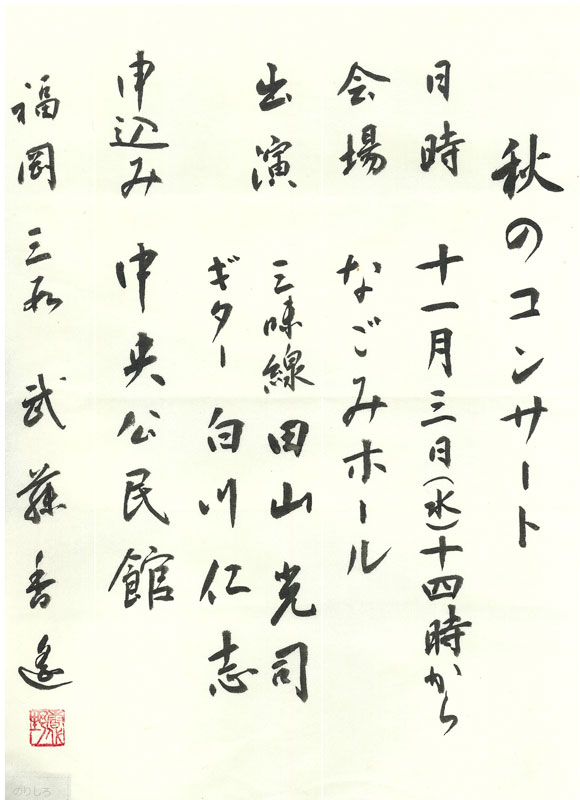 秋のコンサート
日時 十一月三日(水)十四時から
会場 なごみホール
出演 三味線 田山光司
ギター 白川仁志
申込み 中央公民館
福岡 三段 武藤香遥
のりしろ